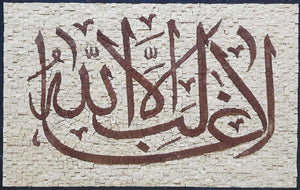 لا غالب إلا الله